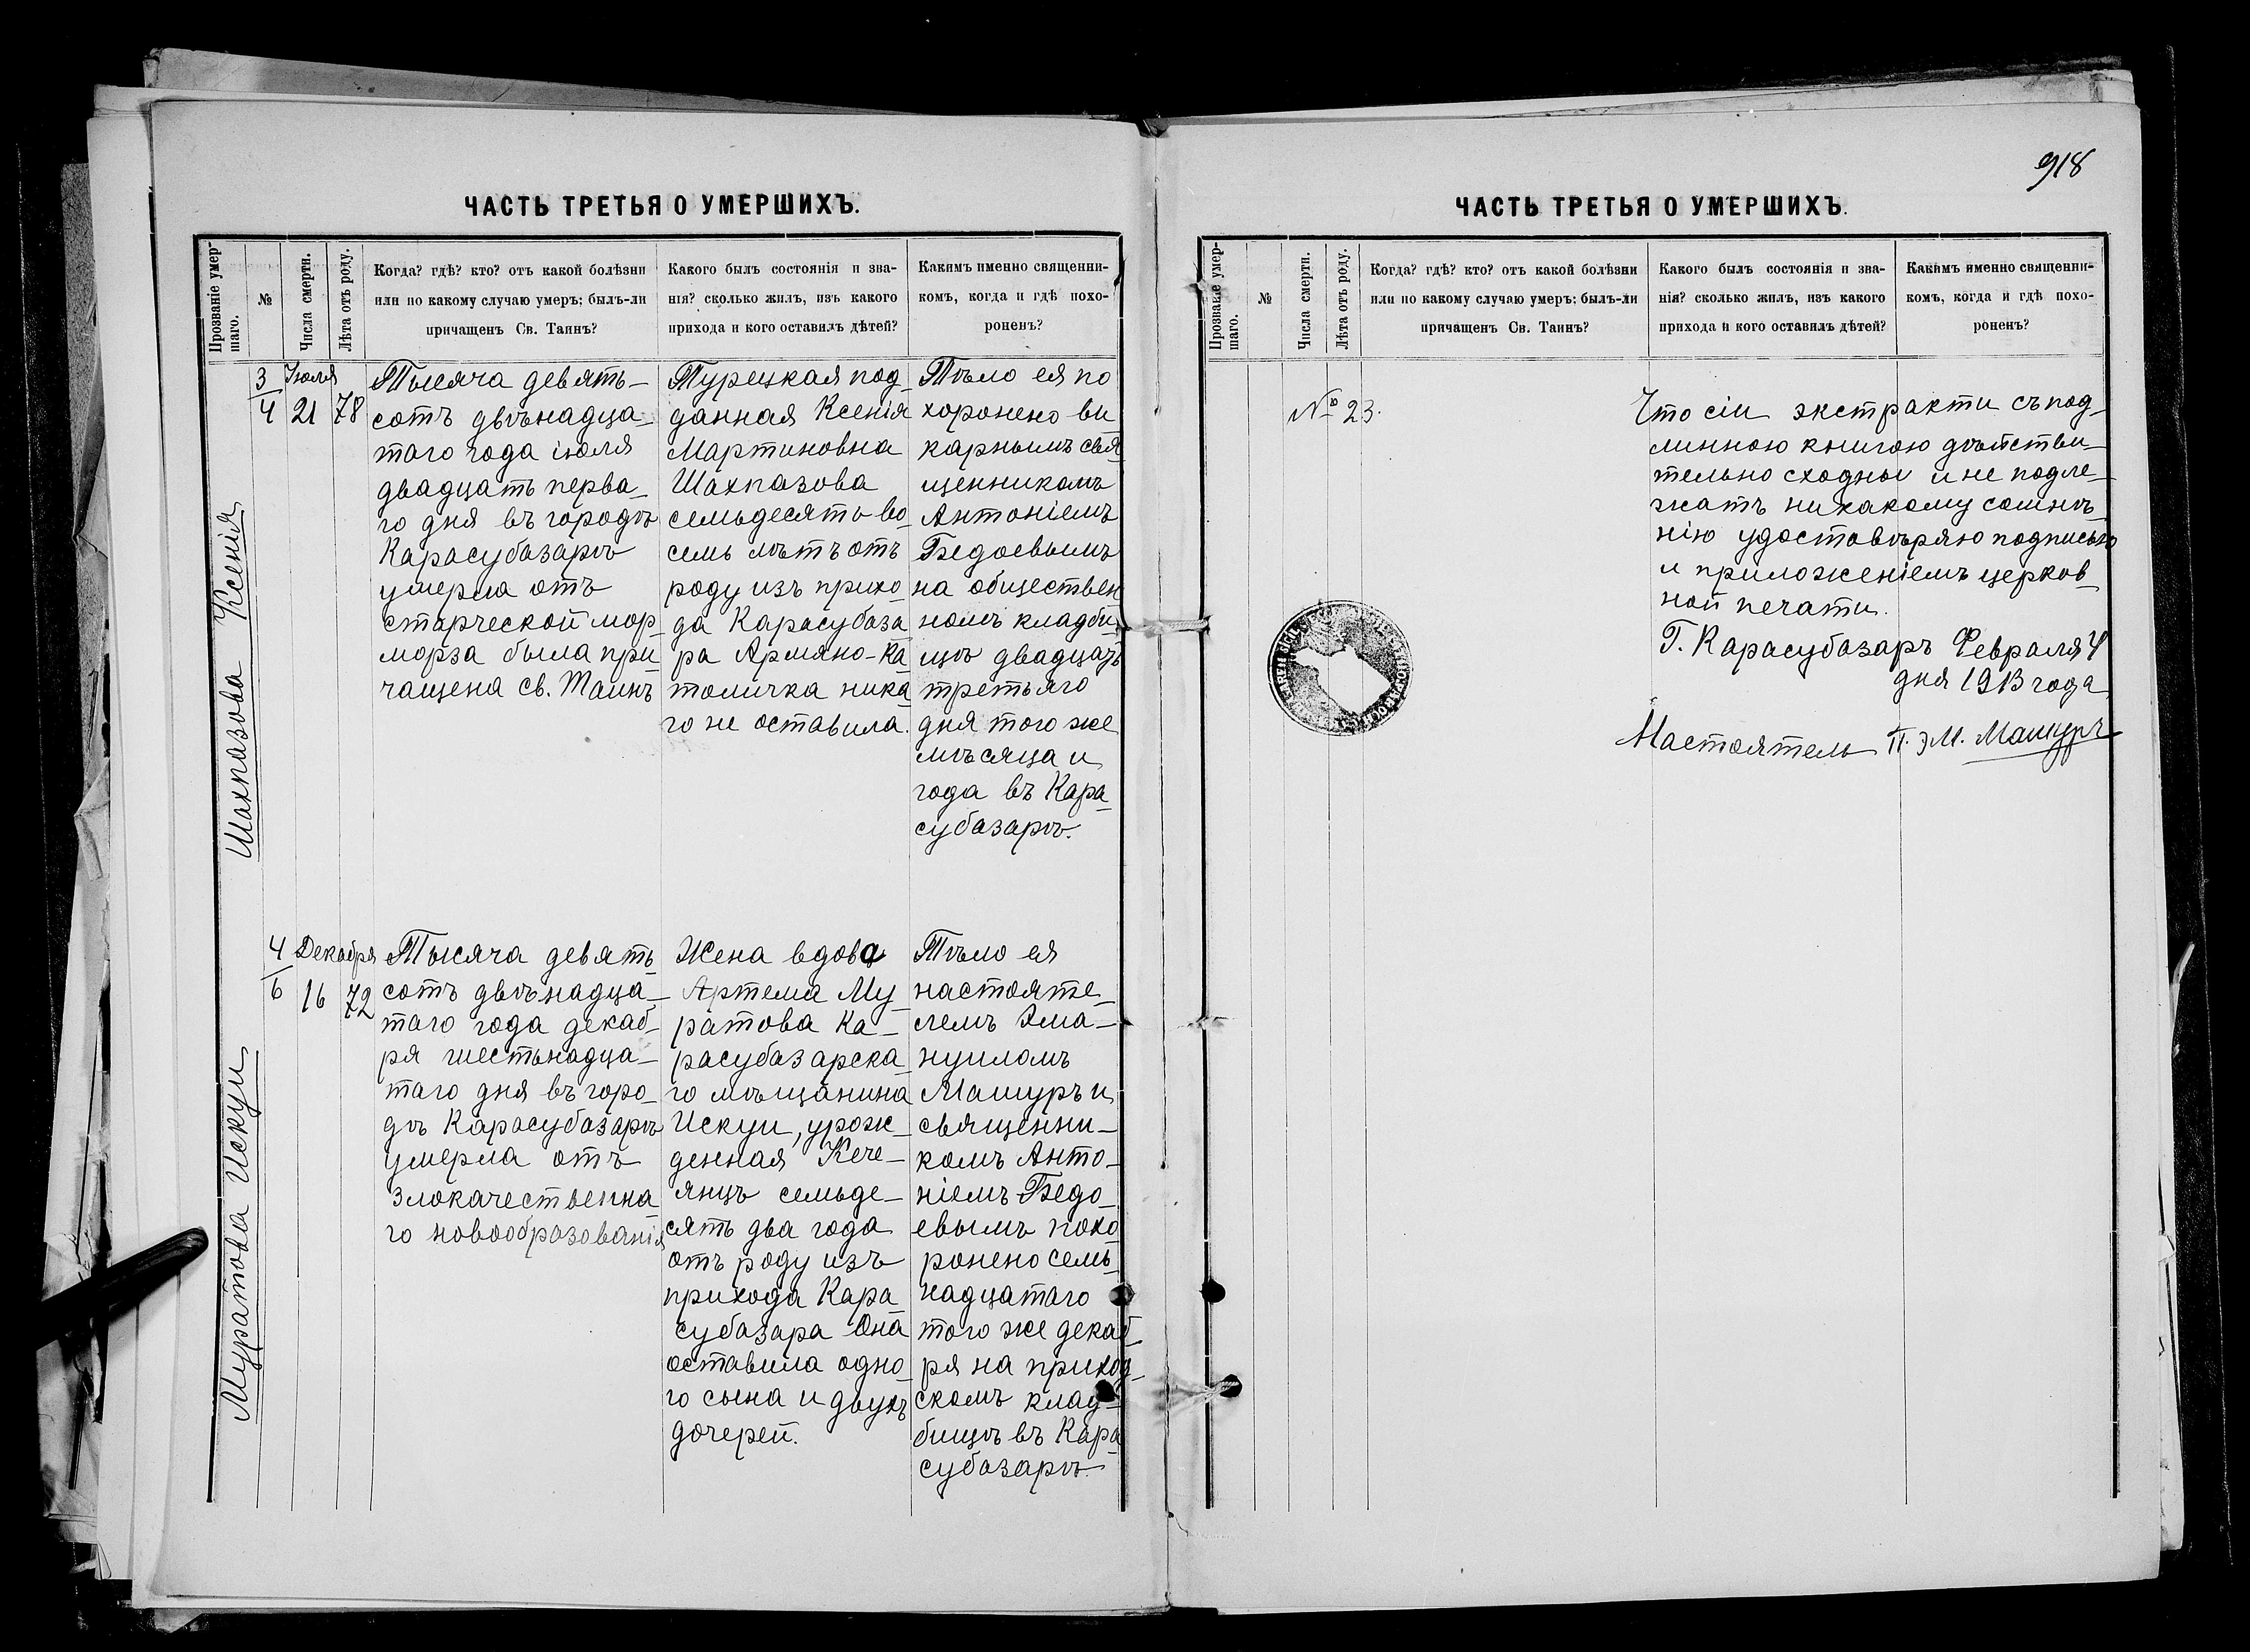 918
ЧАСТЬ ТРЕТЬЯ О УМЕРШИХЪ.
Прозваніе умер-
шаго.
№
Числа смерти.
Лѣта отъ роду.
Когда? гдѣ? кто? отъ какой болѣзни
или по какому случаю умеръ: былъ-ли
причащенъ Св. Таинъ?
Какого былъ состоянія и зва-
нія? сколько жилъ, изъ какого
прихода и кого оставилъ дѣтей?
Какимъ именно священни-
комъ, когда и гдѣ похо-
роненъ?
Шахпазова Ксенія
3
4
Іюля
21
78
Тысяча девять-
сотъ двѣнадца-
таго года іюля
двадцать перва-
го дня въ городѣ
Карасубазарѣ
умерла отъ
старческой мор-
морза была при
чащена св. Таинъ
Турецкая под-
данная Ксенія
Мартиновна
Шахпазова
семьдесять во-
семь лѣтъ отъ
роду изъ прихо-
да Карасубаза
ра Армяно-Ка
толичка нико
го не оставила.
Тѣло ея по
хоронено ви
карнымъ свя-
щенникомъ
Антоніемъ
Бедоевымъ
на обществен
номъ кладби-
щѣ двадцать
третьяго
дня того же
мѣсяца и
года въ Кара-
субазарѣ.
Муратова Искуи
4
6
Декабря
16
72
Тысяча девять
сотъ двѣнадца-
таго года декаб-
ря шестьнадца-
таго дня въ горо-
дѣ Карасубазарѣ
умерла отъ
злокачественна
го новообразованія
Жена вдова
Артема Му-
ратова Ка-
расубазарска-
го мѣщанина
Искуи, урож-
денная Кече-
янцъ семьде-
сять два года
отъ роду изъ
прихода Кара-
субазара Она
оставила одно-
го сына и двухъ
дочерей.
Тѣло ея
настояте-
лемъ Эма-
нуиломъ
Машуръ и
священни-
комъ Анто-
ніемъ Бедо-
евымъ похо
ронено семь-
надцатаго
того же декаб-
ря на приход-
скомъ клад-
бищѣ въ Кара
субазарѣ.
ЧАСТЬ ТРЕТЬЯ О УМЕРШИХЪ.
Прозваніе умер-
шаго.
№
Числа смерти.
Лѣта отъ роду.
Когда? гдѣ? кто? отъ какой болѣзни
или по какому случаю умеръ: былъ-ли
причащенъ Св. Таинъ?
Какого былъ состоянія и зва-
нія? сколько жилъ, изъ какого
прихода и кого оставилъ дѣтей?
Какимъ именно священни-
комъ, когда и гдѣ похо-
роненъ?
№ 23.
Что сіи экстракти съ под-
линною книгою дѣйстви-
тельно сходны и не подле-
жатъ никакому сомнѣ-
нію удостовѣряю подписью
и приложеніемъ церков-
ной печати.
Г. Карасубазаръ Февраля 4
дня 1913 года
Настоятель П. Эм. Машуръ